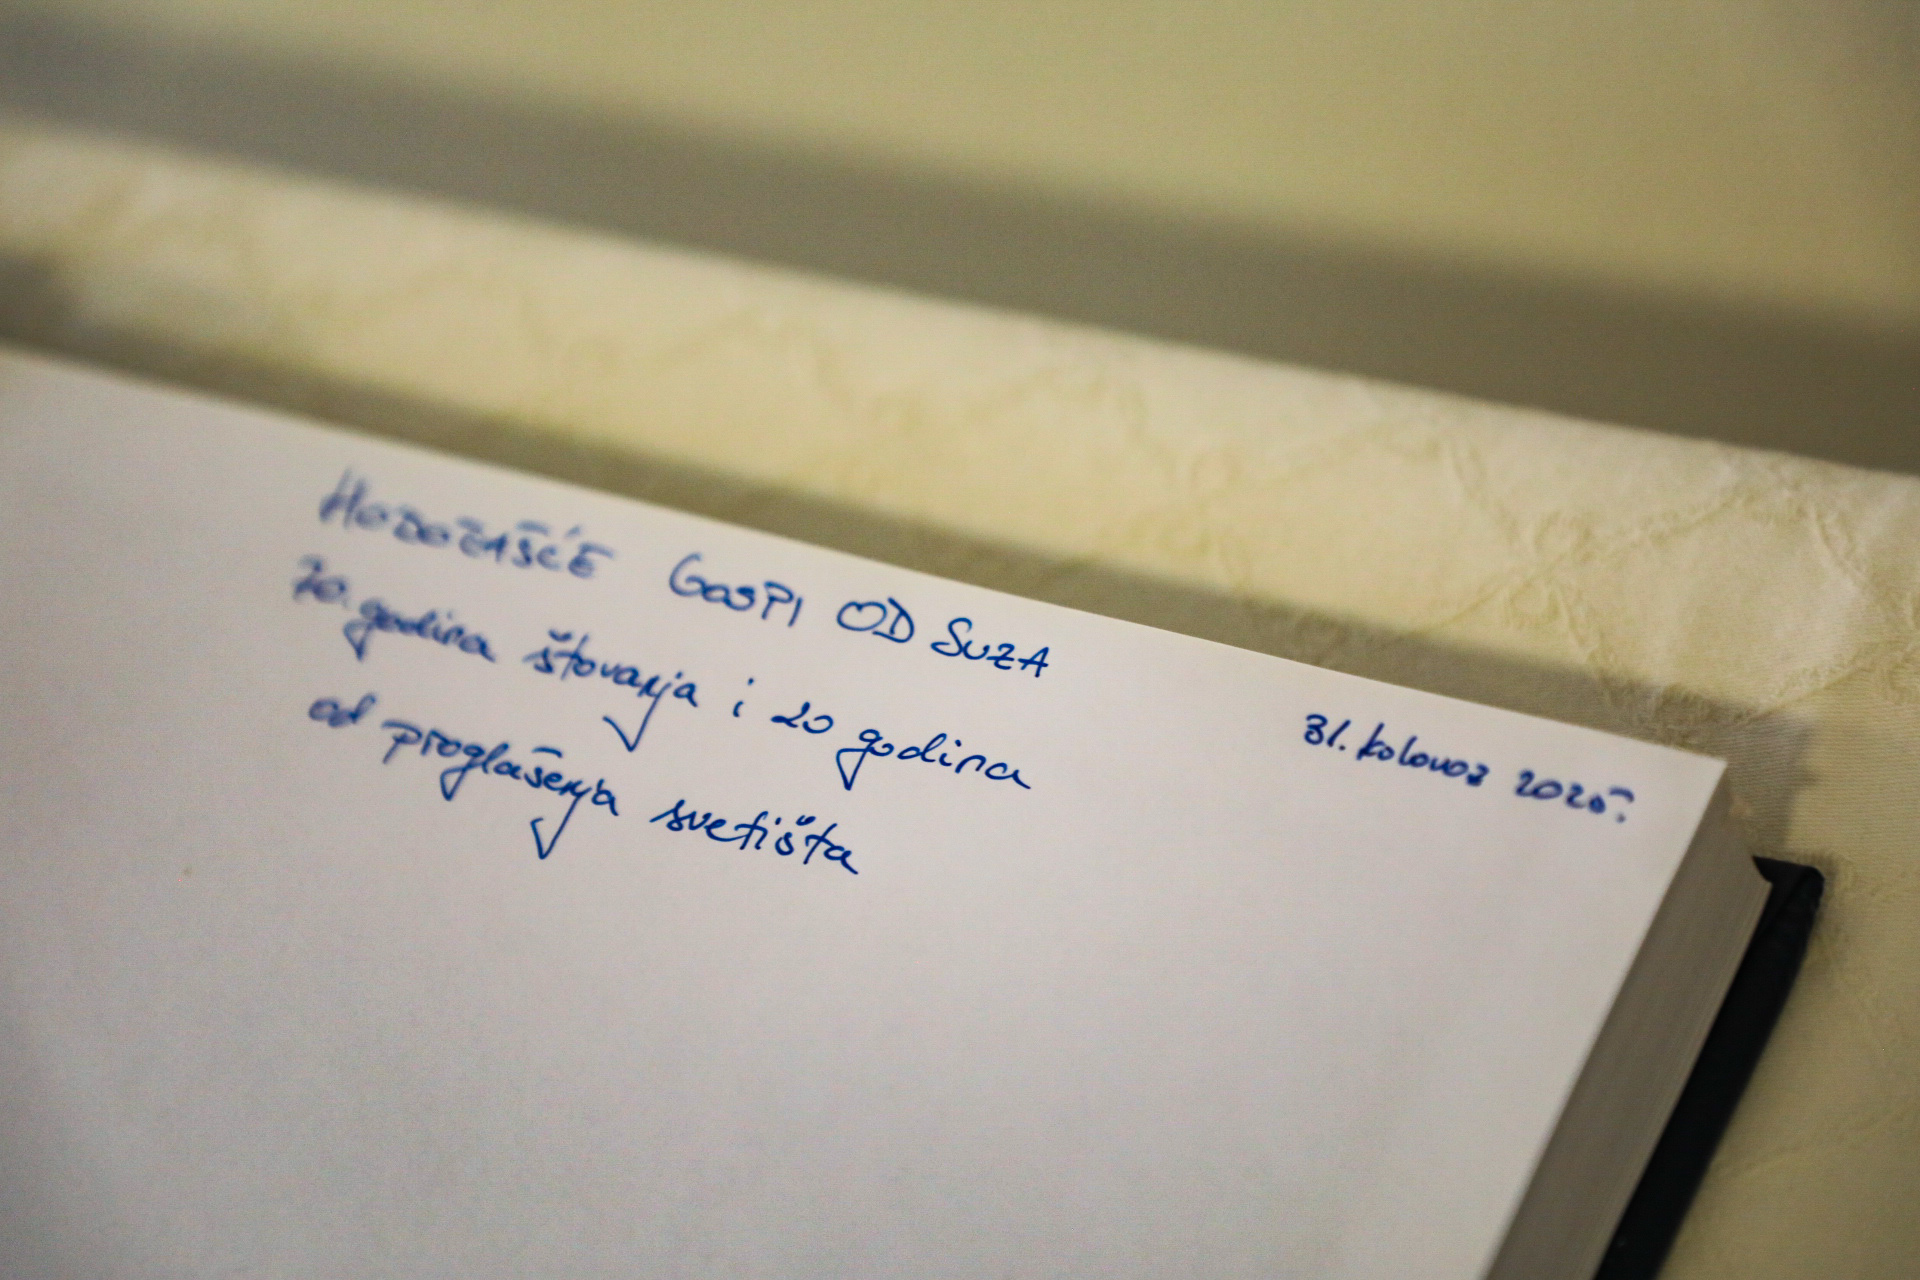 HODOČAŠĆE GOSPI OD SUZA
70. godina štovanja i 20 godina
od proglašenja svetišta
31. kolovoz 2025.